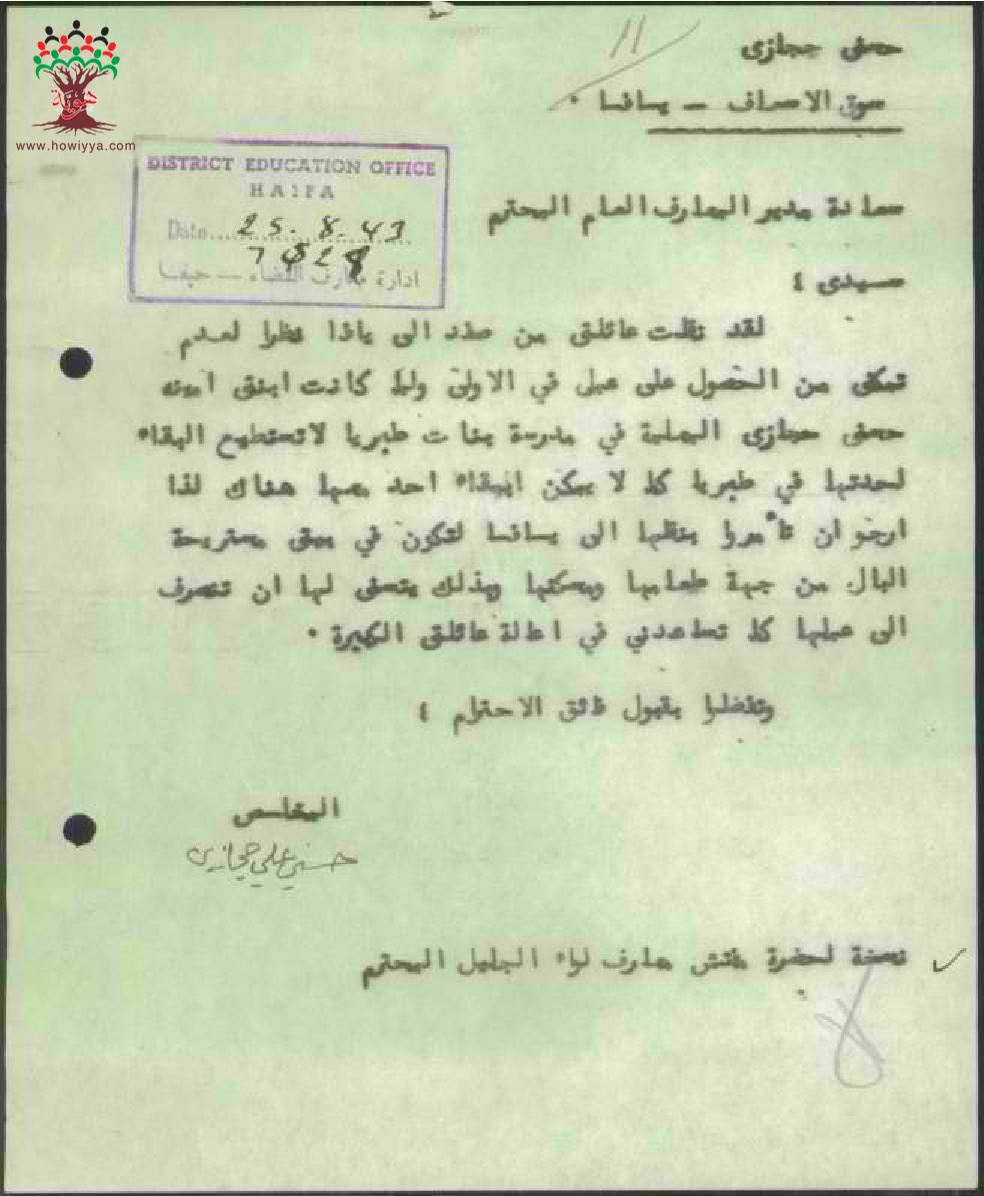 هوية
www.howiyya.com
11
حسني حجازي
سوق الاسعاف – يافا .
DISTRICT EDUCATION OFFICE
HAIFA
Date 25.8.43
ادارة معارف القضاء – حيفا
سعادة مدير المعارف العام المحترم
سيدي ،
لقد نقلت عائلتي من صفد الى يافا نظرا لعدم
تمكني من الحصول على عمل في الاولى ولما كانت ابنتي امينه
حسني حجازي المعلمة في مدرسة بنات طبريا لا تستطيع البقاء
لحدتها في طبريا كما لا يمكن ابقاء احد معها هناك لذا
ارجو ان تأمروا بنقلها الى يافا لتكون في بيتي مستريحة
البال من جهة طعامها ومسكنها وبذلك يتسنى لها ان تنصرف
الى عملها كما تساعدني في اعالة عائلتي الكبيرة .
وتفضلوا بقبول فائق الاحترام ،
المخلص
حسني علي حجازي
نسخة لحضرة مفتش معارف لواء الجليل المحترم